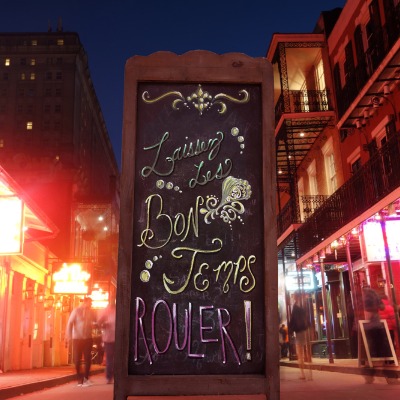 Laissez
Les
BON
TEMPS
ROULER!